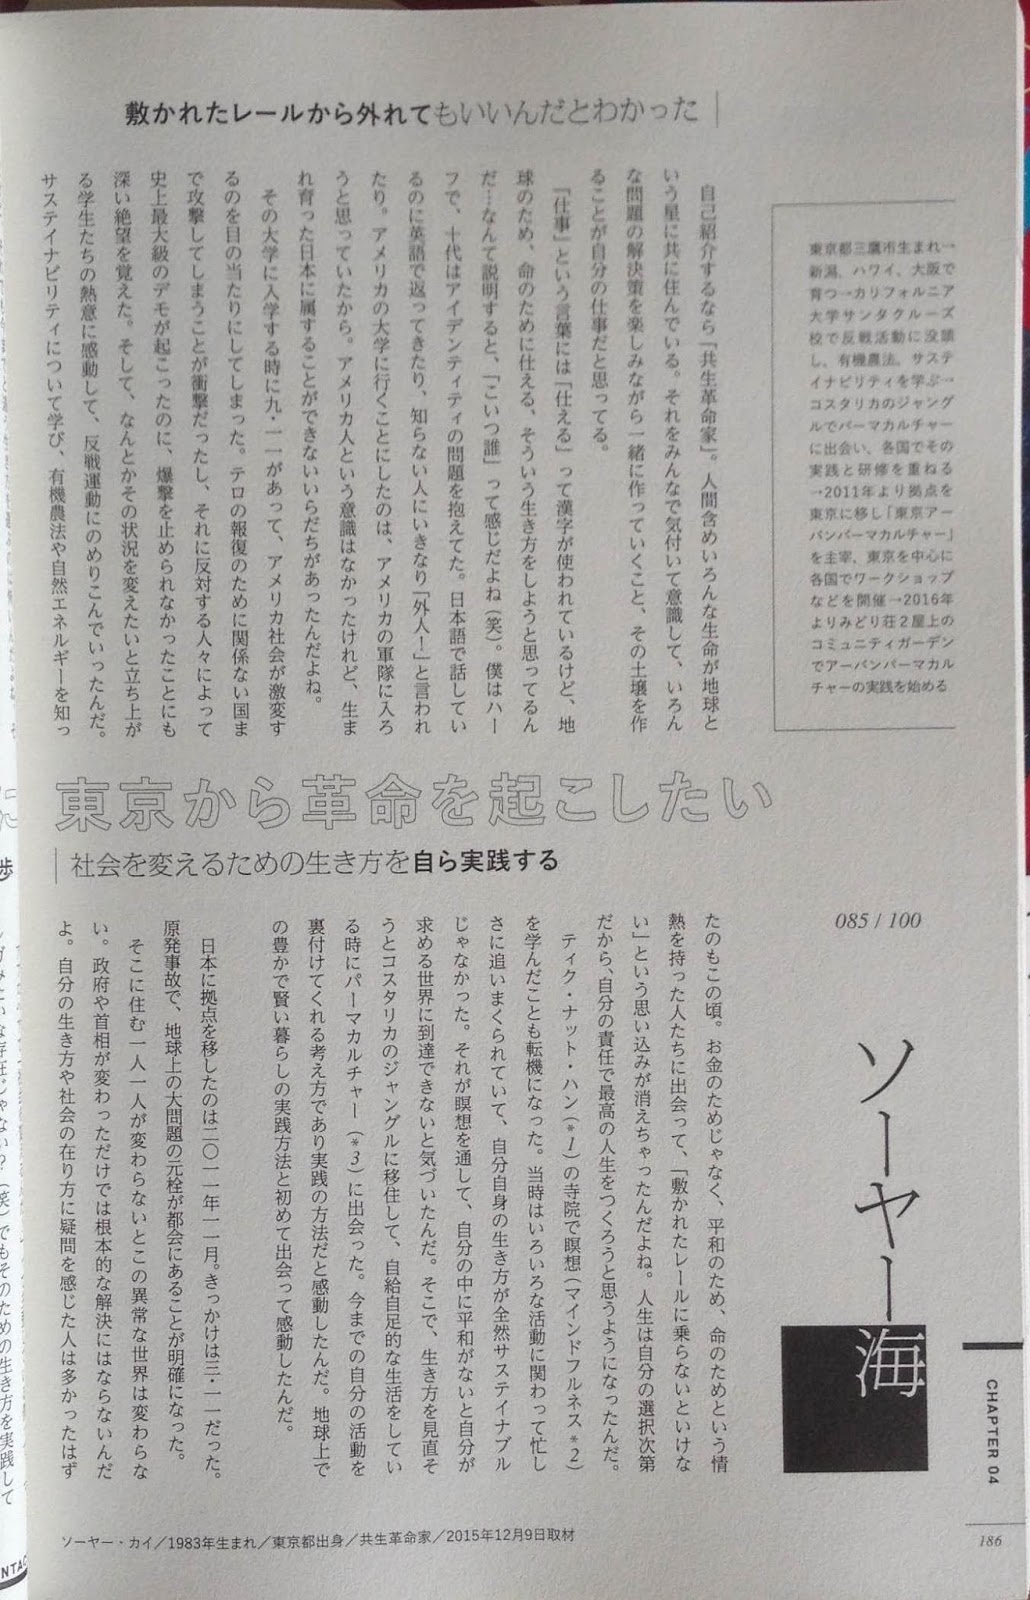 敷かれたレールから外れてもいいんだとわかった
東京都三鷹市生まれ→
新潟、ハワイ、大阪で
育つ→カリフォルニア
大学サンタクルーズ
校で反戦活動に没頭
し、有機農法、サステ
イナビリティを学ぶ→
コスタリカのジャング
ルでパーマカルチャー
に出会い、各国でその
実践と研修を重ねる
→2011年より拠点を
東京に移し「東京アー
バンパーマカルチャー」
を主宰、東京を中心に
各国でワークショップ
などを開催→2016年
よりみどり荘2屋上の
コミュニティガーデン
でアーバンパーマカル
チャーの実践を始める
自己紹介するなら「共生革命家」。人間含めいろんな生命が地球と
いう星に共に住んでいる。それをみんなで気付いて意識して、いろん
な問題の解決策を楽しみながら一緒に作っていくこと、その土壌を作
ることが自分の仕事だと思ってる。
「仕事」という言葉には「仕える」って漢字が使われているけど、地
球のため、命のために仕える、そういう生き方をしようと思ってるん
だ…なんて説明すると、「こいつ誰」って感じだよね（笑）。僕はハー
フで、十代はアイデンティティの問題を抱えてた。日本語で話してい
るのに英語で返ってきたり、知らない人にいきなり「外人！」と言われ
たり。アメリカの大学に行くことにしたのは、アメリカの軍隊に入ろ
うと思っていたから。アメリカ人という意識はなかったけれど、生ま
れ育った日本に属することができないいらだちがあったんだよね。
その大学に入学する時に九・一一があって、アメリカ社会が激変す
るのを目の当たりにしてしまった。テロの報復のために関係ない国ま
で攻撃してしまうことが衝撃だったし、それに反対する人々によって
史上最大級のデモが起こったのに、爆撃を止められなかったことにも
深い絶望を覚えた。そして、なんとかその状況を変えたいと立ち上が
る学生たちの熱意に感動して、反戦運動にのめりこんでいったんだ。
サステイナビリティについて学び、有機農法や自然エネルギーを知っ
東京から革命を起こしたい
社会を変えるための生き方を自ら実践する
085 / 100
ソーヤー海
たのもこの頃。お金のためじゃなく、平和のため、命のためという情
熱を持った人たちに出会って、「敷かれたレールに乗らないといけな
い」という思い込みが消えちゃったんだよね。人生は自分の選択次第
だから、自分の責任で最高の人生をつくろうと思うようになったんだ。
ティク・ナット・ハン（*1）の寺院で瞑想（マインドフルネス*2）
を学んだことも転機になった。当時はいろいろな活動に関わって忙し
さに追いまくられていて、自分自身の生き方が全然サステイナブル
じゃなかった。それが瞑想を通して、自分の中に平和がないと自分が
求める世界に到達できないと気づいたんだ。そこで、生き方を見直そ
うとコスタリカのジャングルに移住して、自給自足的な生活をしてい
る時にパーマカルチャー（*3）に出会った。今までの自分の活動を
裏付けてくれる考え方であり実践の方法だと感動したんだ。地球上で
の豊かで賢い暮らしの実践方法と初めて出会って感動したんだ。
日本に拠点を移したのは二〇一一年一一月。きっかけは三・一一だった。
原発事故で、地球上の大問題の元栓が都会にあることが明確になった。
そこに住む一人一人が変わらないとこの異常な世界は変わらな
い。政府や首相が変わっただけでは根本的な解決にはならないんだ
よ。自分の生き方や社会の在り方に疑問を感じた人は多かったはず
CHAPTER 04
ソーヤー・カイ／1983年生まれ／東京都出身／共生革命家／2015年12月9日取材
186